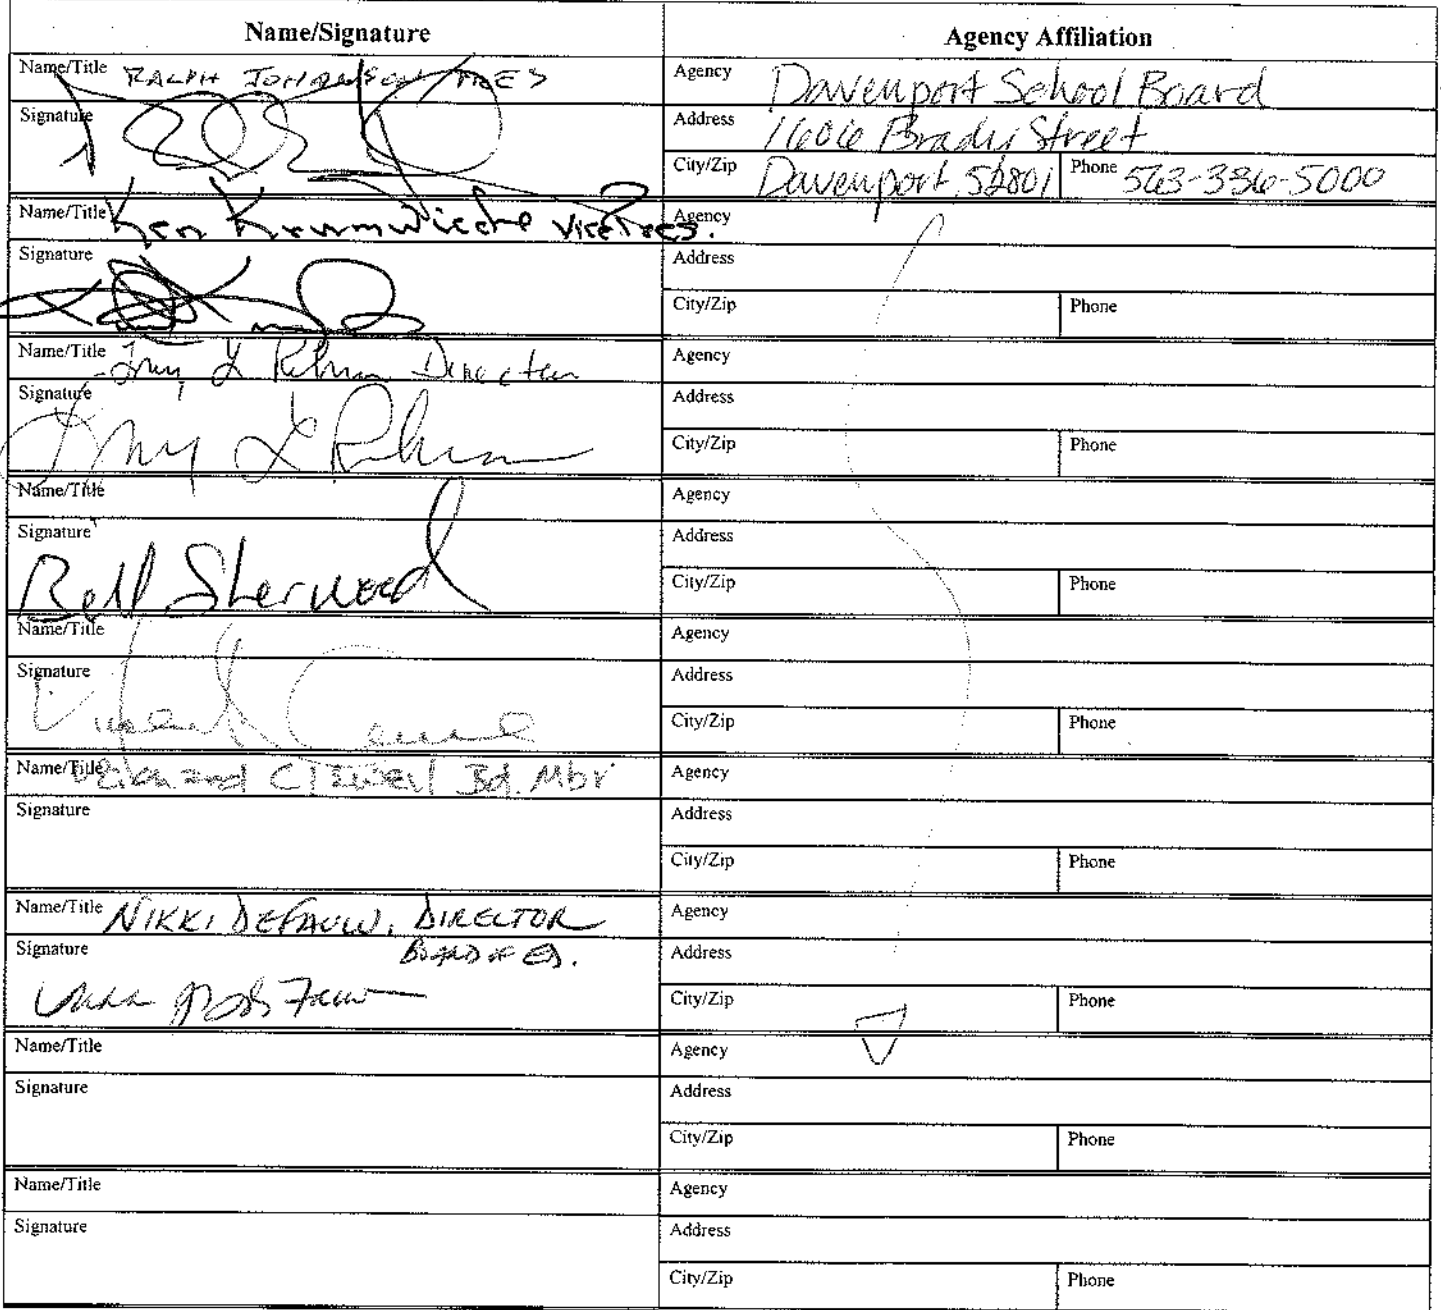 Name/Signature
Agency Affiliation
Name/Title RALPH JOHANSON PRES
Agency Davenport School Board
Signature
Address 1606 Brady Street
City/Zip Davenport 52801 Phone 563-336-5000
Name/Title Ken Krumwiede Vice Pres.
Agency
Signature
Address
City/Zip Phone
Name/Title L Director
Agency
Signature
Address
City/Zip Phone
Name/Title
Agency
Signature Sherwood
Address
City/Zip Phone
Name/Title
Agency
Signature
Address
City/Zip Phone
Name/Title Bd. Mbr
Agency
Signature
Address
City/Zip Phone
Name/Title NIKKI DEFAUW, DIRECTOR
BOARD OF ED.
Agency
Signature
Address
City/Zip Phone
Name/Title
Agency
Signature
Address
City/Zip Phone
Name/Title
Agency
Signature
Address
City/Zip Phone